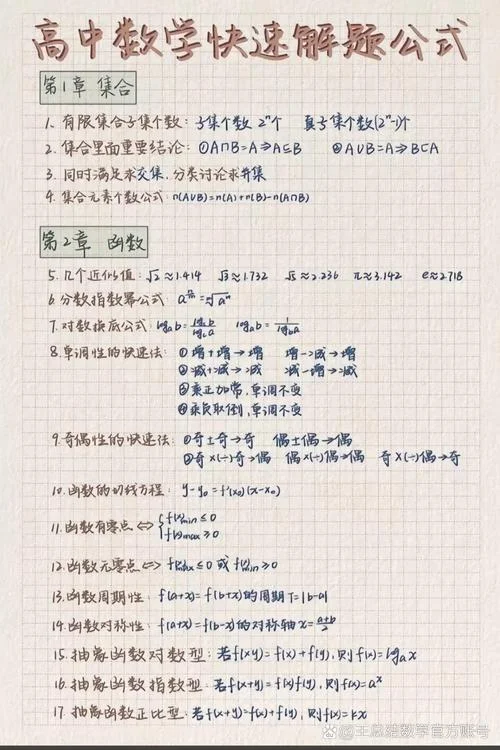 高中数学快速解题公式
第1章 集合
1. 有限集合子集个数: 子集个数 2ⁿ个 真子集个数(2ⁿ-1)个
2. 集合里面重要结论: ①A∩B=A⇒A⊆B ②A∪B=A⇒B⊂A
3. 同时满足求交集, 分类讨论求并集
4. 集合元素个数公式: n(A∪B)=n(A)+n(B)-n(A∩B)
第2章 函数
5. 几个近似值: √2≈1.414 √3≈1.732 √5≈2.236 π≈3.142 e≈2.718
6. 分数指数幂公式: a^(n/m)=ᵐ√aⁿ
7. 对数换底公式: logₐb=log_c b/log_c a logₐb=1/log_b a
8. 单调性的快速法: ①增+增→增 增-减→增
②减+减→减 减-增→减
③乘正加常, 单调不变
④乘负取倒, 单调不变
9. 奇偶性的快速法: ①奇±奇→奇 偶±偶→偶
②奇×(÷)奇→偶 偶×(÷)偶→偶 奇×(÷)偶→奇
10. 函数的切线方程: y-y₀=f'(x₀)(x-x₀)
11. 函数有零点⇔{f(x)min≤0
f(x)max≥0
12. 函数无零点⇔f(x)max≤0 或 f(x)min≥0
13. 函数周期性: f(a+x)=f(b+x)的周期T=|b-a|
14. 函数对称性: f(a+x)=f(b-x)的对称轴x=(a+b)/2
15. 抽象函数对数型: 若f(xy)=f(x)+f(y), 则f(x)=logₐx
16. 抽象函数指数型: 若f(x+y)=f(x)f(y), 则f(x)=aˣ
17. 抽象函数正比型: 若f(x+y)=f(x)+f(y), 则f(x)=kx